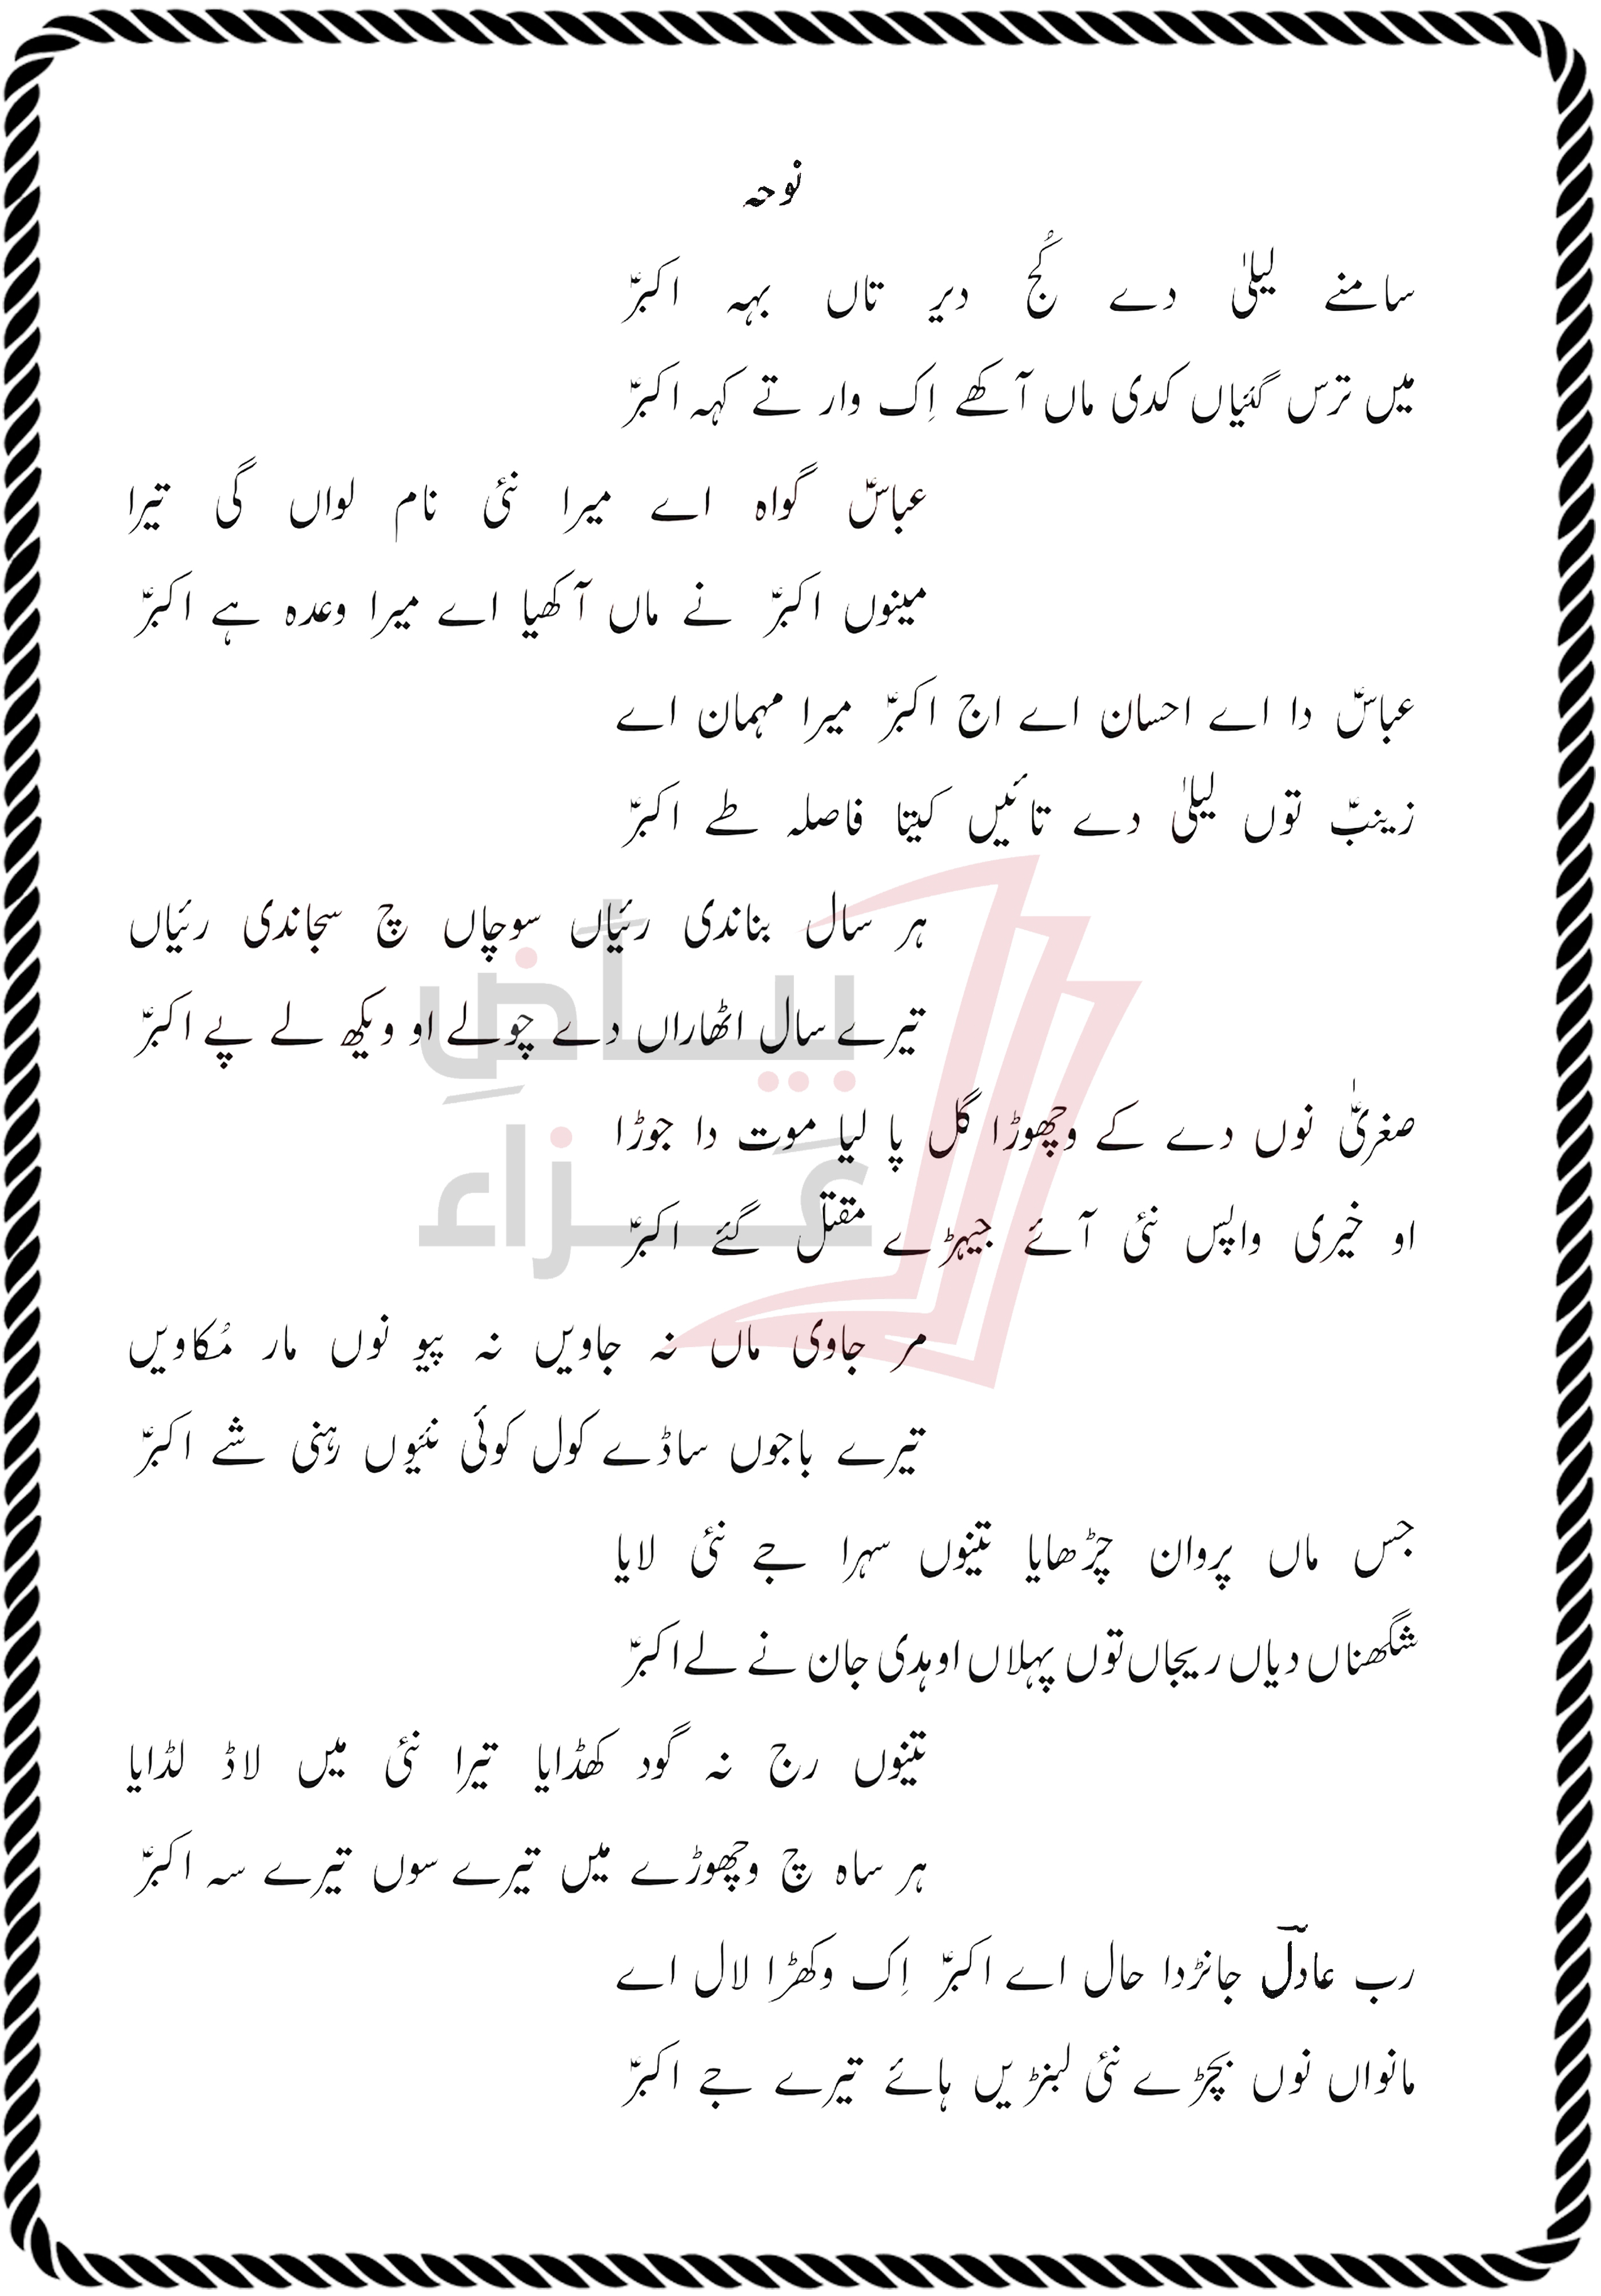 نوحہ
سامنے لیلیٰ دے کُج دیر تاں بہہ اکبرؑ
میں ترس گئیاں کدی ماں آکھے اِک وار تے کہہ اکبرؑ
عباسؑ گواہ اے میرا نئی نام لواں گی تیرا
مینوں اکبرؑ نے ماں آکھیا اے میرا وعدہ ہے اکبرؑ
عباسؑ دا اے احسان اے اج اکبرؑ میرا مہمان اے
زینبؑ توں لیلیٰ دے تائیں کیتا فاصلہ طے اکبرؑ
ہر سال بناندی رئیاں سوچاں چ سجاندی رئیاں
تیرے سال اٹھاراں دے چولے او ویکھ لے پے اکبرؑ
بیاضِ
صغریٰؑ نوں دے کے وچھوڑا گل پا لیا موت دا جوڑا
عزاء
او خیری واپس نئی آئے جیہڑے مقتل گئے اکبرؑ
مر جاوی ماں نہ جاویں نہ پیو نوں مار مُکاویں
تیرے باجوں ساڈے کول کوئی نئیوں رہنی شے اکبرؑ
جس ماں پروان چڑھایا تینوں سہرا جے نئی لایا
شگھناں دیاں ریجاں توں پہلاں اوہدی جان نے لے اکبرؑ
تینوں رج نہ گود کھڈایا تیرا نئی میں لاڈ لڈایا
ہر ساہ چ وچھوڑے میں تیرے سوں تیرے سہ اکبرؑ
رب عادلؔ جانڑدا حال اے اکبرؑ اِک وکھڑا لال اے
مانواں نوں بچڑے نئی لبنڑیں ہائے تیرے جے اکبرؑ